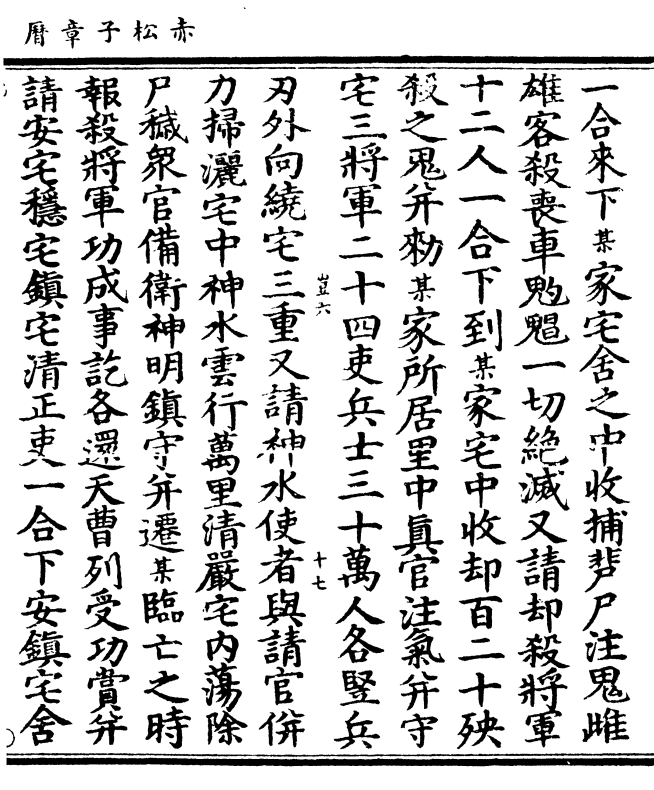 赤松子章曆
一合來下某家宅舍之中收捕尸注鬼雌
雄客殺喪車一切絕滅又請却殺將軍
十二人一合下到某家宅中收却百二十殃
殺之鬼并勑某家所居里中眞官注氣并守
宅三將軍二十四吏兵士三十萬人各竪兵
豈六
十七
刃外向繞宅三重又請神水使者與請官併
力掃灑宅中神水雲行萬里清嚴宅內蕩除
尸穢衆官備衛神明鎮守并遷某臨亡之時
報殺將軍功成事訖各還天曹列受功賞并
請安宅穩宅鎮宅清正吏一合下安鎮宅舍